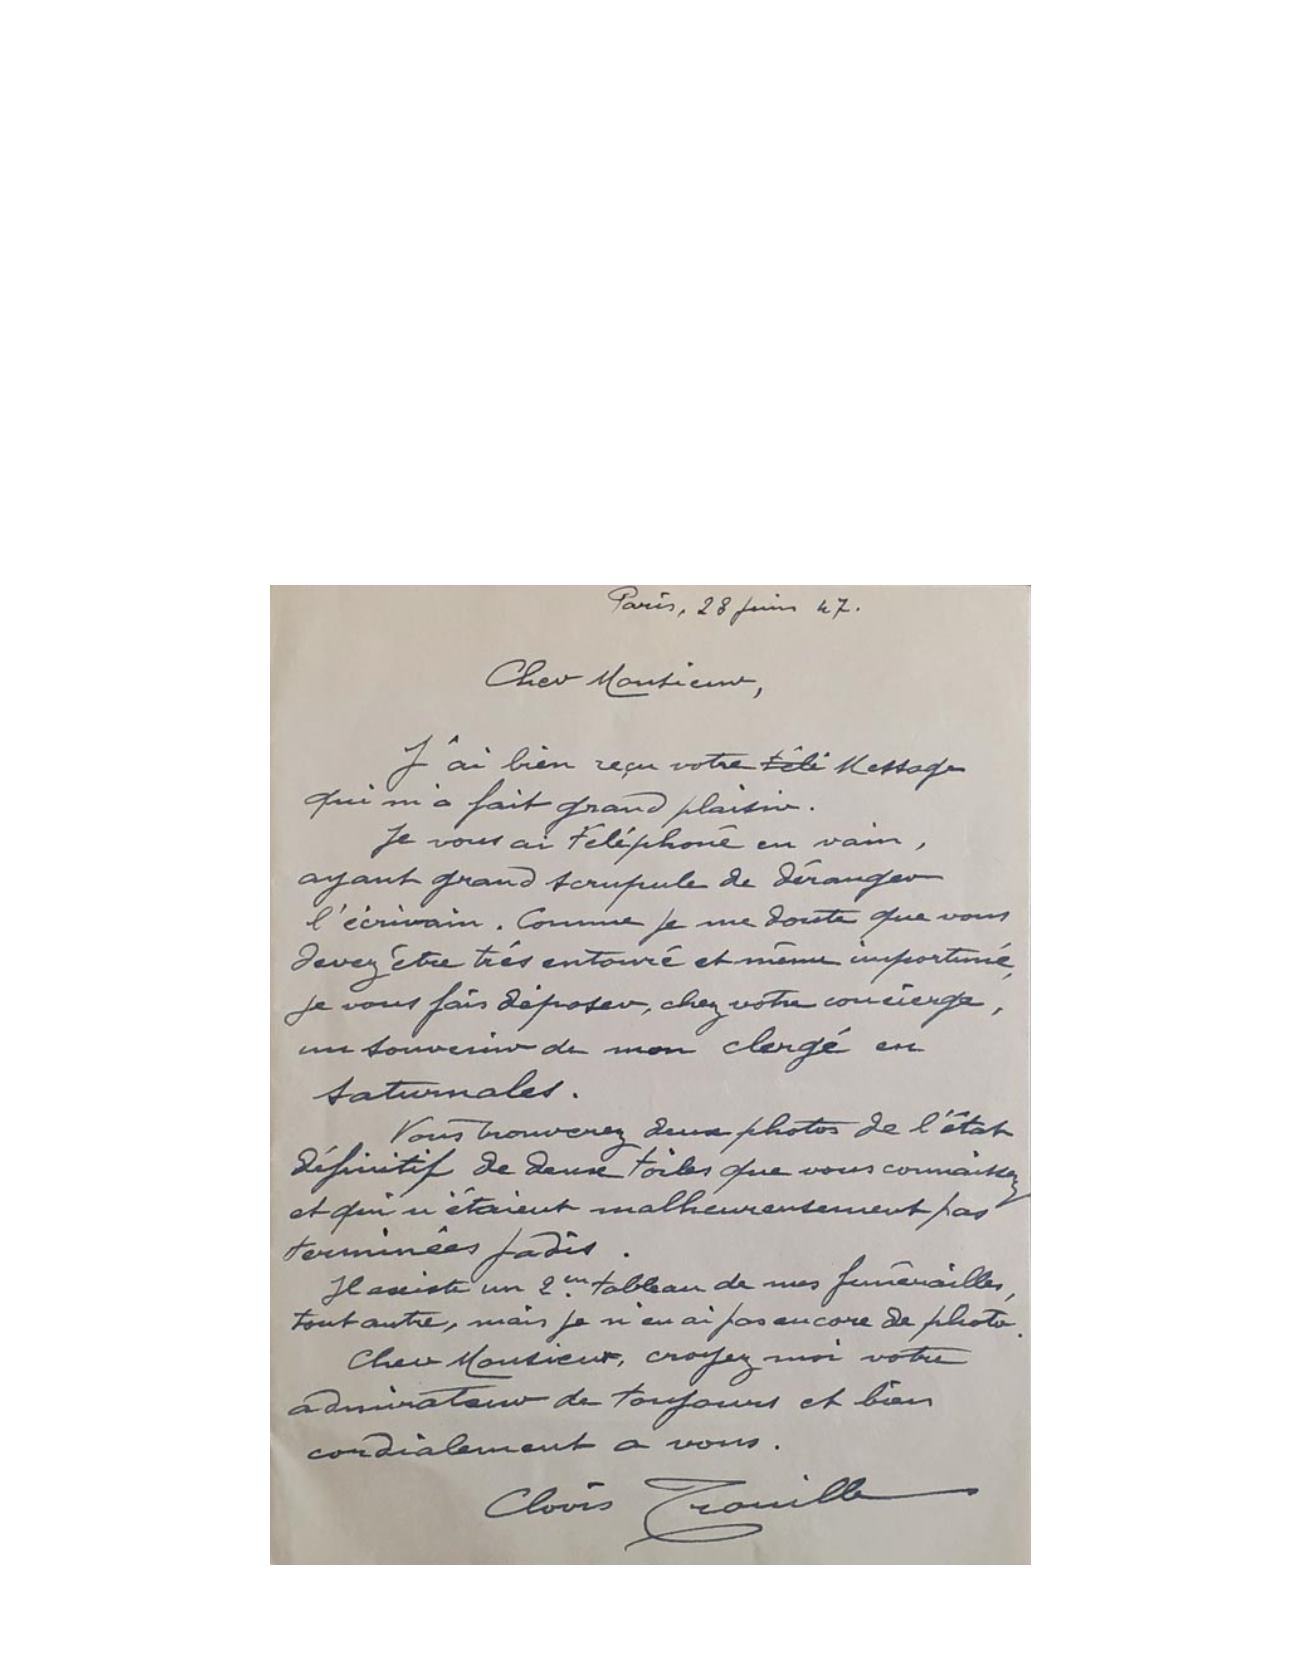 Paris, 28 juin 47.
Cher Monsieur,
J'ai bien reçu votre télé Message
qui m'a fait grand plaisir.
Je vous ai téléphoné en vain,
ayant grand scrupule de déranger
l'écrivain. Comme je me doute que vous
devez être trés entouré et même importuné,
je vous fais déposer, chez votre concierge,
un souvenir de mon clergé en
saturnales.
Vous trouverez deux photos de l'état
définitif de deux toiles que vous connaissez
et qui n'étaient malheureusement pas
terminées jadis.
Il existe un 2em. tableau de mes funérailles,
tout autre, mais je n'en ai pas encore de photo.
Cher Monsieur, croyez moi votre
admirateur de toujours et bien
cordialement a vous.
Clovis Trouille